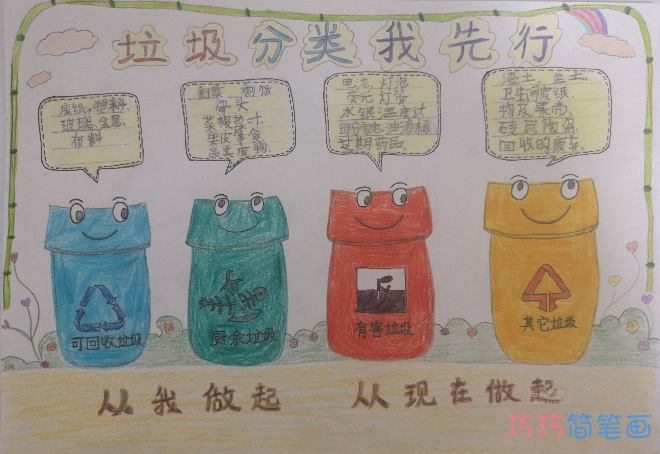 垃圾分类我先行
废纸 塑料
玻璃 金属
布料
剩菜 剩饭
骨头
菜根菜叶
果皮等食
灯泡
水银温度计
过期药品
卫生间废纸
物及果壳
砖瓦陶瓷
回收的废
可回收垃圾
厨余垃圾
有害垃圾
其它垃圾
从我做起 从现在做起
巧巧简笔画